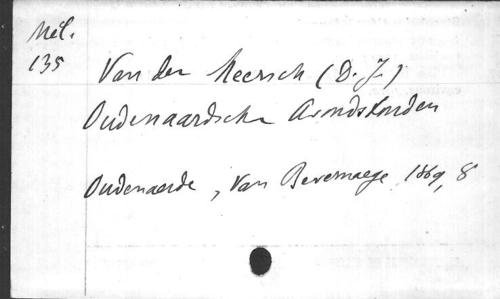 Mél.
135
Van der Meersch (D. J.)
Oudenaardsche Avondstonden
Oudenaerde, Van Bevernaege 1869, 8